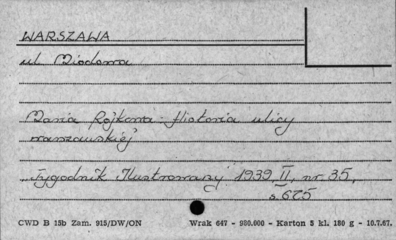 WARSZAWA
ul. Miodowa
Maria Rojkowa: Historia ulicy
warszawskiej
Tygodnik Ilustrowany 1939, II, nr 35,
s. 675
CWD B 15b Zam. 915/DW/ON Wrak 647 - 980.000 - Karton 5 kl. 180 g - 10.7.67.